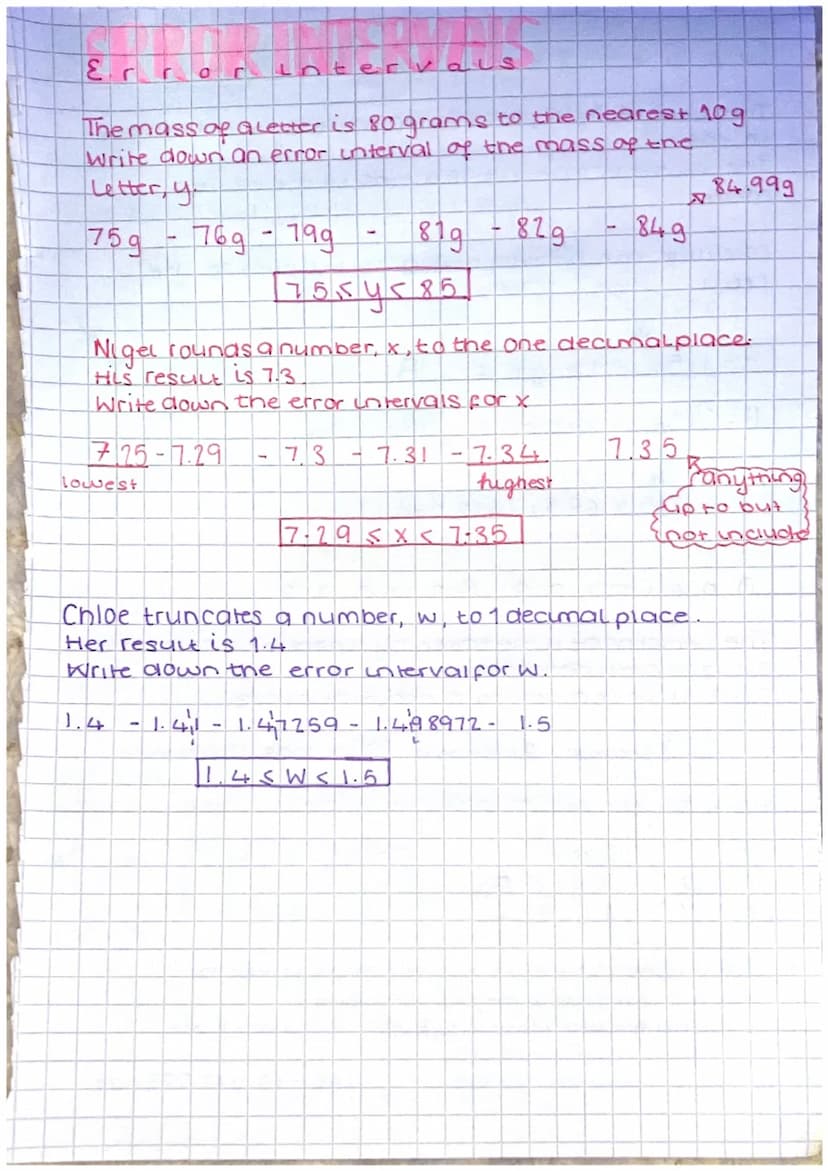 ERROR INTERVALS
Error intervals
The mass of a letter is 80 grams to the nearest 10g
Write down an error interval of the mass of the
Letter, y.
84.99g
75g - 76g - 79g - 81g - 82g - 84g
75≤y<85
Nigel rounds a number, x, to the one decimal place.
His result is 7.3.
Write down the error intervals for x
7.25 - 7.29 - 7.3 - 7.31 - 7.34 7.35
lowest highest anything
up to but
not include
7.29 ≤ x < 7.35
Chloe truncates a number, w, to 1 decimal place.
Her result is 1.4
Write down the error interval for w.
1.4 - 1.41 - 1.47259 - 1.498972 - 1.5
1.4 ≤ W < 1.5